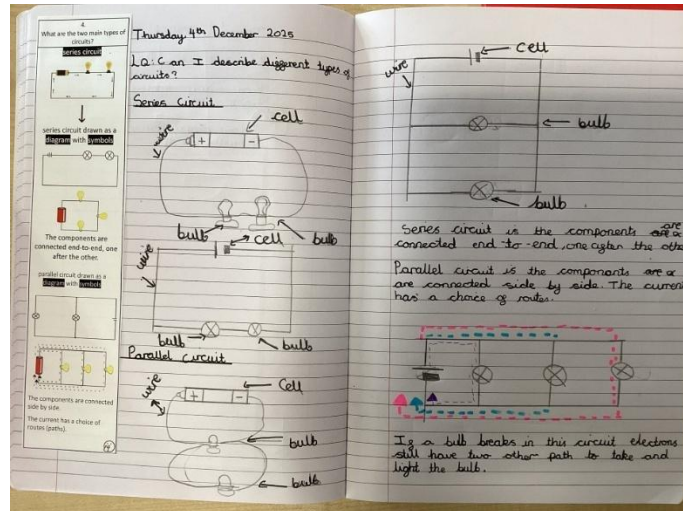 4.
What are the two main types of
circuits?
series circuit
series circuit drawn as a
diagram with symbols
The components are
connected end-to-end, one
after the other.
parallel circuit drawn as a
diagram with symbols
The components are connected
side by side.
The current has a choice of
routes (paths).
Thursday 4th December 2025
LQ: Can I describe different types of
circuits?
Series Circuit
cell
wire
+ -
bulb
bulb
cell
wire
bulb
bulb
Parallel Circuit
wire
Cell
+ -
bulb
bulb
cell
wire
bulb
bulb
Series circuit is the components are
connected end-to-end, one after the othe
Parallel circuit is the components are
are connected side by side. The curren
has a choice of routes.
If a bulb breaks in this circuit electrons
still have two other path to take and
light the bulb.